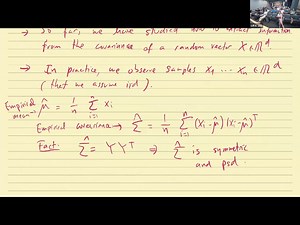 → So far, we have studied how to extract information
from the covariance of a random vector X ∈ ℝᵈ
→ In practice, we observe samples x₁ ... xₙ ∈ ℝᵈ
(that we assume iid).
Empirical mean→ μ̂ = 1/n Σᵢ₌₁ⁿ xᵢ
Empirical covariance → Σ̂ = 1/n Σᵢ₌₁ⁿ (xᵢ-μ̂)(xᵢ-μ̂)ᵀ
Fact: Σ̂ = YYᵀ ⇒ Σ̂ is symmetric
and psd.